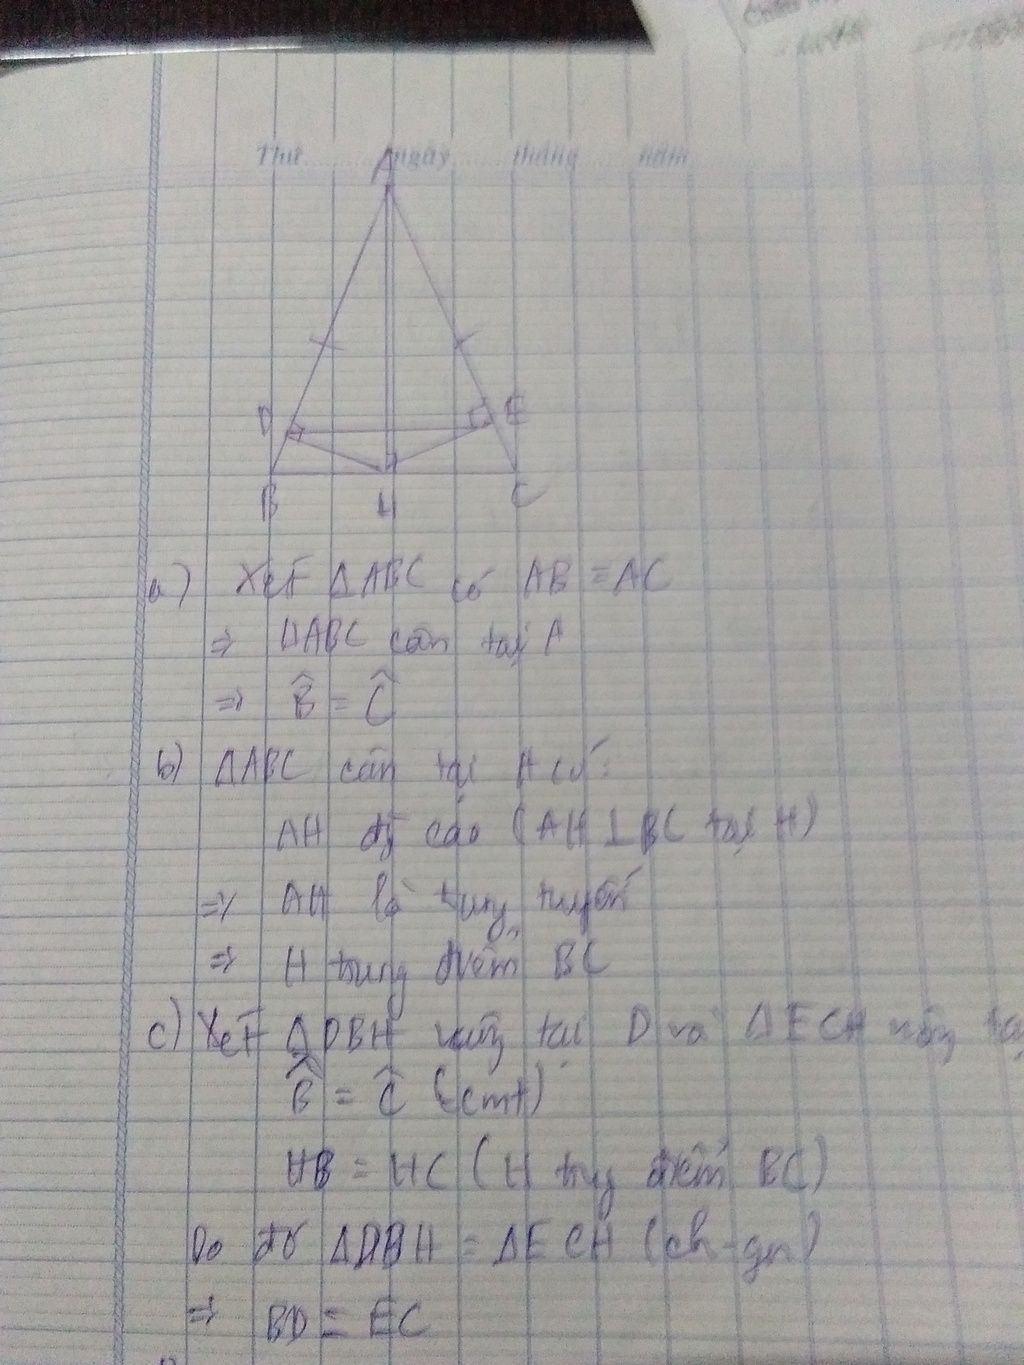 Thứ ngày tháng năm
A
D E
B H C
a) Xét ΔABC có AB = AC
=> ΔABC cân tại A
=> B̂ = Ĉ
b) ΔABC cân tại A có:
AH đg cao (AH ⊥ BC tại H)
=> AH là trung tuyến
=> H trung điểm BC
c) Xét ΔDBH vuông tại D và ΔECH vuông tạ
B̂ = Ĉ (cmt)
HB = HC (H trung điểm BC)
Do đó ΔDBH = ΔECH (ch-gn)
=> BD = EC